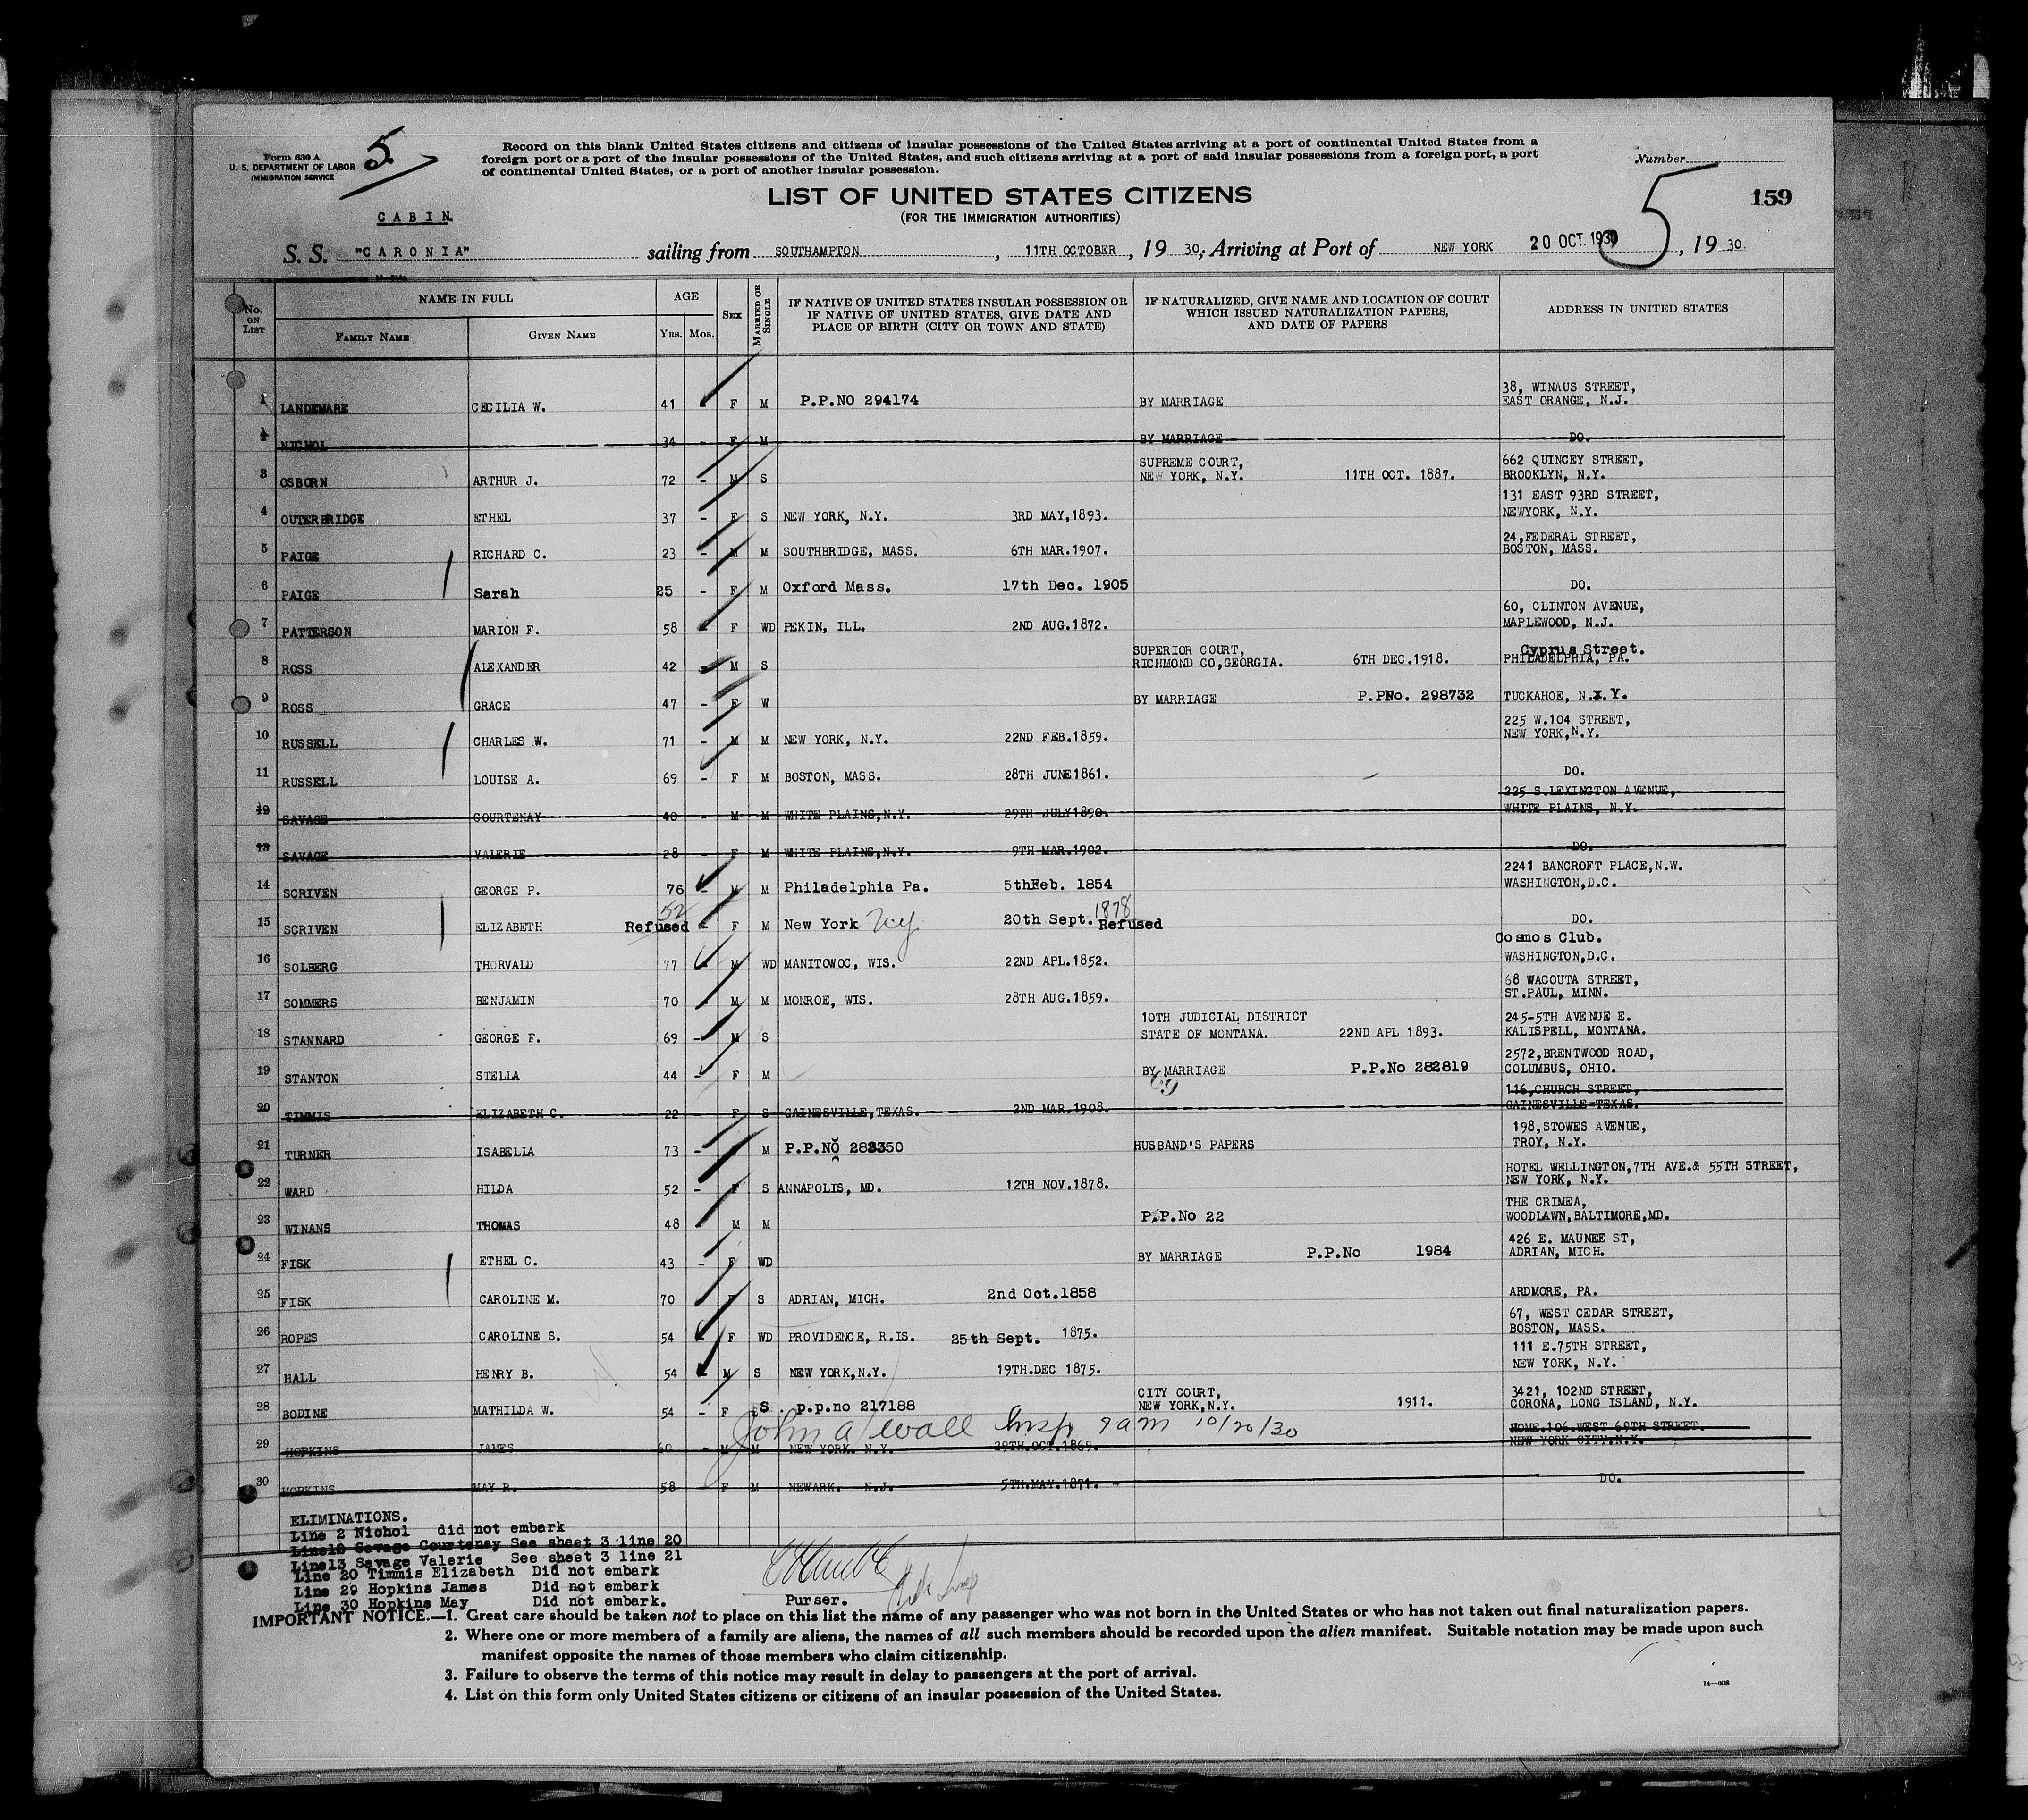 Form 630 A
U. S. DEPARTMENT OF LABOR
IMMIGRATION SERVICE
5
Record on this blank United States citizens and citizens of insular possessions of the United States arriving at a port of continental United States from a
foreign port or a port of the insular possessions of the United States, and such citizens arriving at a port of said insular possessions from a foreign port, a port
of continental United States, or a port of another insular possession.
Number
LIST OF UNITED STATES CITIZENS
(FOR THE IMMIGRATION AUTHORITIES)
5
159
CABIN.
S. S. "CARONIA" sailing from SOUTHAMPTON, 11TH OCTOBER, 19 30, Arriving at Port of NEW YORK 20 OCT. 1930, 19 30
No. ON LIST
NAME IN FULL
FAMILY NAME
GIVEN NAME
AGE
YRS. MOS.
SEX
MARRIED OR SINGLE
IF NATIVE OF UNITED STATES INSULAR POSSESSION OR
IF NATIVE OF UNITED STATES, GIVE DATE AND
PLACE OF BIRTH (CITY OR TOWN AND STATE)
IF NATURALIZED, GIVE NAME AND LOCATION OF COURT
WHICH ISSUED NATURALIZATION PAPERS,
AND DATE OF PAPERS
ADDRESS IN UNITED STATES
1 LANDEMARE CECILIA W. 41 - F M P.P.NO 294174 BY MARRIAGE 38, WINAUS STREET,
EAST ORANGE, N.J.
2 NICHOL 34 - F M BY MARRIAGE DO.
3 OSBORN ARTHUR J. 72 - M S SUPREME COURT,
NEW YORK, N.Y. 11TH OCT. 1887. 662 QUINCEY STREET,
BROOKLYN, N.Y.
4 OUTERBRIDGE ETHEL 37 - F S NEW YORK, N.Y. 3RD MAY,1893. 131 EAST 93RD STREET,
NEWYORK, N.Y.
5 PAIGE RICHARD C. 23 - M M SOUTHBRIDGE, MASS. 6TH MAR.1907. 24,FEDERAL STREET,
BOSTON, MASS.
6 PAIGE Sarah 25 - F M Oxford Mass. 17th Dec. 1905 DO.
7 PATTERSON MARION F. 58 - F WD PEKIN, ILL. 2ND AUG.1872. 60, CLINTON AVENUE,
MAPLEWOOD, N.J.
8 ROSS ALEXANDER 42 - M S SUPERIOR COURT,
RICHMOND CO,GEORGIA. 6TH DEC.1918. Cyprus Street.
PHILADELPHIA, PA.
9 ROSS GRACE 47 - F W BY MARRIAGE P.PNo. 298732 TUCKAHOE, N.Y.
10 RUSSELL CHARLES W. 71 - M M NEW YORK, N.Y. 22ND FEB.1859. 225 W.104 STREET,
NEW YORK,N.Y.
11 RUSSELL LOUISE A. 69 - F M BOSTON, MASS. 28TH JUNE1861. DO.
12 SAVAGE COURTENAY 40 - M M WHITE PLAINS,N.Y. 29TH JULY1890. 225 S.LEXINGTON AVENUE,
WHITE PLAINS, N.Y.
13 SAVAGE VALERIE 28 - F M WHITE PLAINS,N.Y. 9TH MAR.1902. DO.
14 SCRIVEN GEORGE P. 76 - M M Philadelphia Pa. 5thFeb. 1854 2241 BANCROFT PLACE,N.W.
WASHINGTON,D.C.
15 SCRIVEN ELIZABETH 52 Refused - F M New York NY 20th Sept. 1878 Refused DO.
16 SOLBERG THORVALD 77 - M WD MANITOWOC, WIS. 22ND APL.1852. Cosmos Club.
WASHINGTON,D.C.
17 SOMMERS BENJAMIN 70 - M M MONROE, WIS. 28TH AUG.1859. 68 WACOUTA STREET,
ST.PAUL, MINN.
18 STANNARD GEORGE F. 69 - M S 10TH JUDICIAL DISTRICT
STATE OF MONTANA. 22ND APL 1893. 245-5TH AVENUE E.
KALISPELL, MONTANA.
19 STANTON STELLA 44 - F M BY MARRIAGE P.P.No 282819 2572,BRENTWOOD ROAD,
COLUMBUS, OHIO.
69
20 TIMMIS ELIZABETH C. 22 - F S GAINESVILLE,TEXAS. 2ND MAR.1908. 116,CHURCH STREET,
GAINESVILLE-TEXAS.
21 TURNER ISABELLA 73 - M P.P.NO 283350 HUSBAND'S PAPERS 198,STOWES AVENUE,
TROY, N.Y.
22 WARD HILDA 52 - F S ANNAPOLIS, MD. 12TH NOV.1878. HOTEL WELLINGTON,7TH AVE.& 55TH STREET,
NEW YORK, N.Y.
23 WINANS THOMAS 48 - M M P.P.No 22 THE CRIMEA,
WOODLAWN,BALTIMORE,MD.
24 FISK ETHEL C. 43 - F WD BY MARRIAGE P.P.No 1984 426 E. MAUNEE ST,
ADRIAN, MICH.
25 FISK CAROLINE M. 70 - F S ADRIAN, MICH. 2nd Oct.1858 ARDMORE, PA.
26 ROPES CAROLINE S. 54 - F WD PROVIDENCE, R.IS. 25th Sept. 1875. 67, WEST CEDAR STREET,
BOSTON, MASS.
27 HALL HENRY B. 54 - M S NEW YORK,N.Y. 19TH.DEC 1875. 111 E.75TH STREET,
NEW YORK, N.Y.
28 BODINE MATHILDA W. 54 - F S p.p.no 217188 CITY COURT,
NEW YORK,N.Y. 1911. 3421, 102ND STREET,
CORONA, LONG ISLAND, N.Y.
John A Wall Insp 9am 10/20/30
29 HOPKINS JAMES 60 - M M NEW YORK. N.Y. 29TH.OCT.1869. HOME.106.WEST 69TH STREET.
NEW YORK CITY.N.Y.
30 HOPKINS MAY R. 58 - F M NEWARK. N.J. 5TH.MAY.1871. DO.
ELIMINATIONS.
Line 2 Nichol did not embark
Line12 Savage Courtenay See sheet 3 line 20
Line13 Savage Valerie See sheet 3 line 21
Line 20 Timmis Elizabeth Did not embark
Line 29 Hopkins James Did not embark
Line 30 Hopkins May Did not embark.
Purser.
IMPORTANT NOTICE.—1. Great care should be taken not to place on this list the name of any passenger who was not born in the United States or who has not taken out final naturalization papers.
2. Where one or more members of a family are aliens, the names of all such members should be recorded upon the alien manifest. Suitable notation may be made upon such
manifest opposite the names of those members who claim citizenship.
3. Failure to observe the terms of this notice may result in delay to passengers at the port of arrival.
4. List on this form only United States citizens or citizens of an insular possession of the United States.
14—608